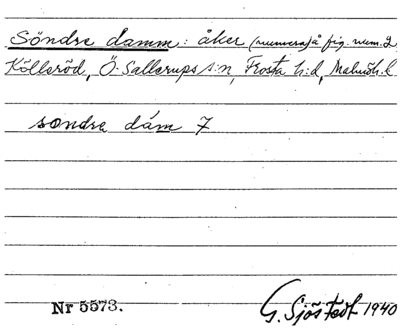 Söndre damm: åker (numera) å fig. num. 2
Kölleröd, Ö. Sallerups s:n, Frosta h:d, Malmöh. l
søndre dám 7
Nr 5573.
G. Sjöstedt 1940